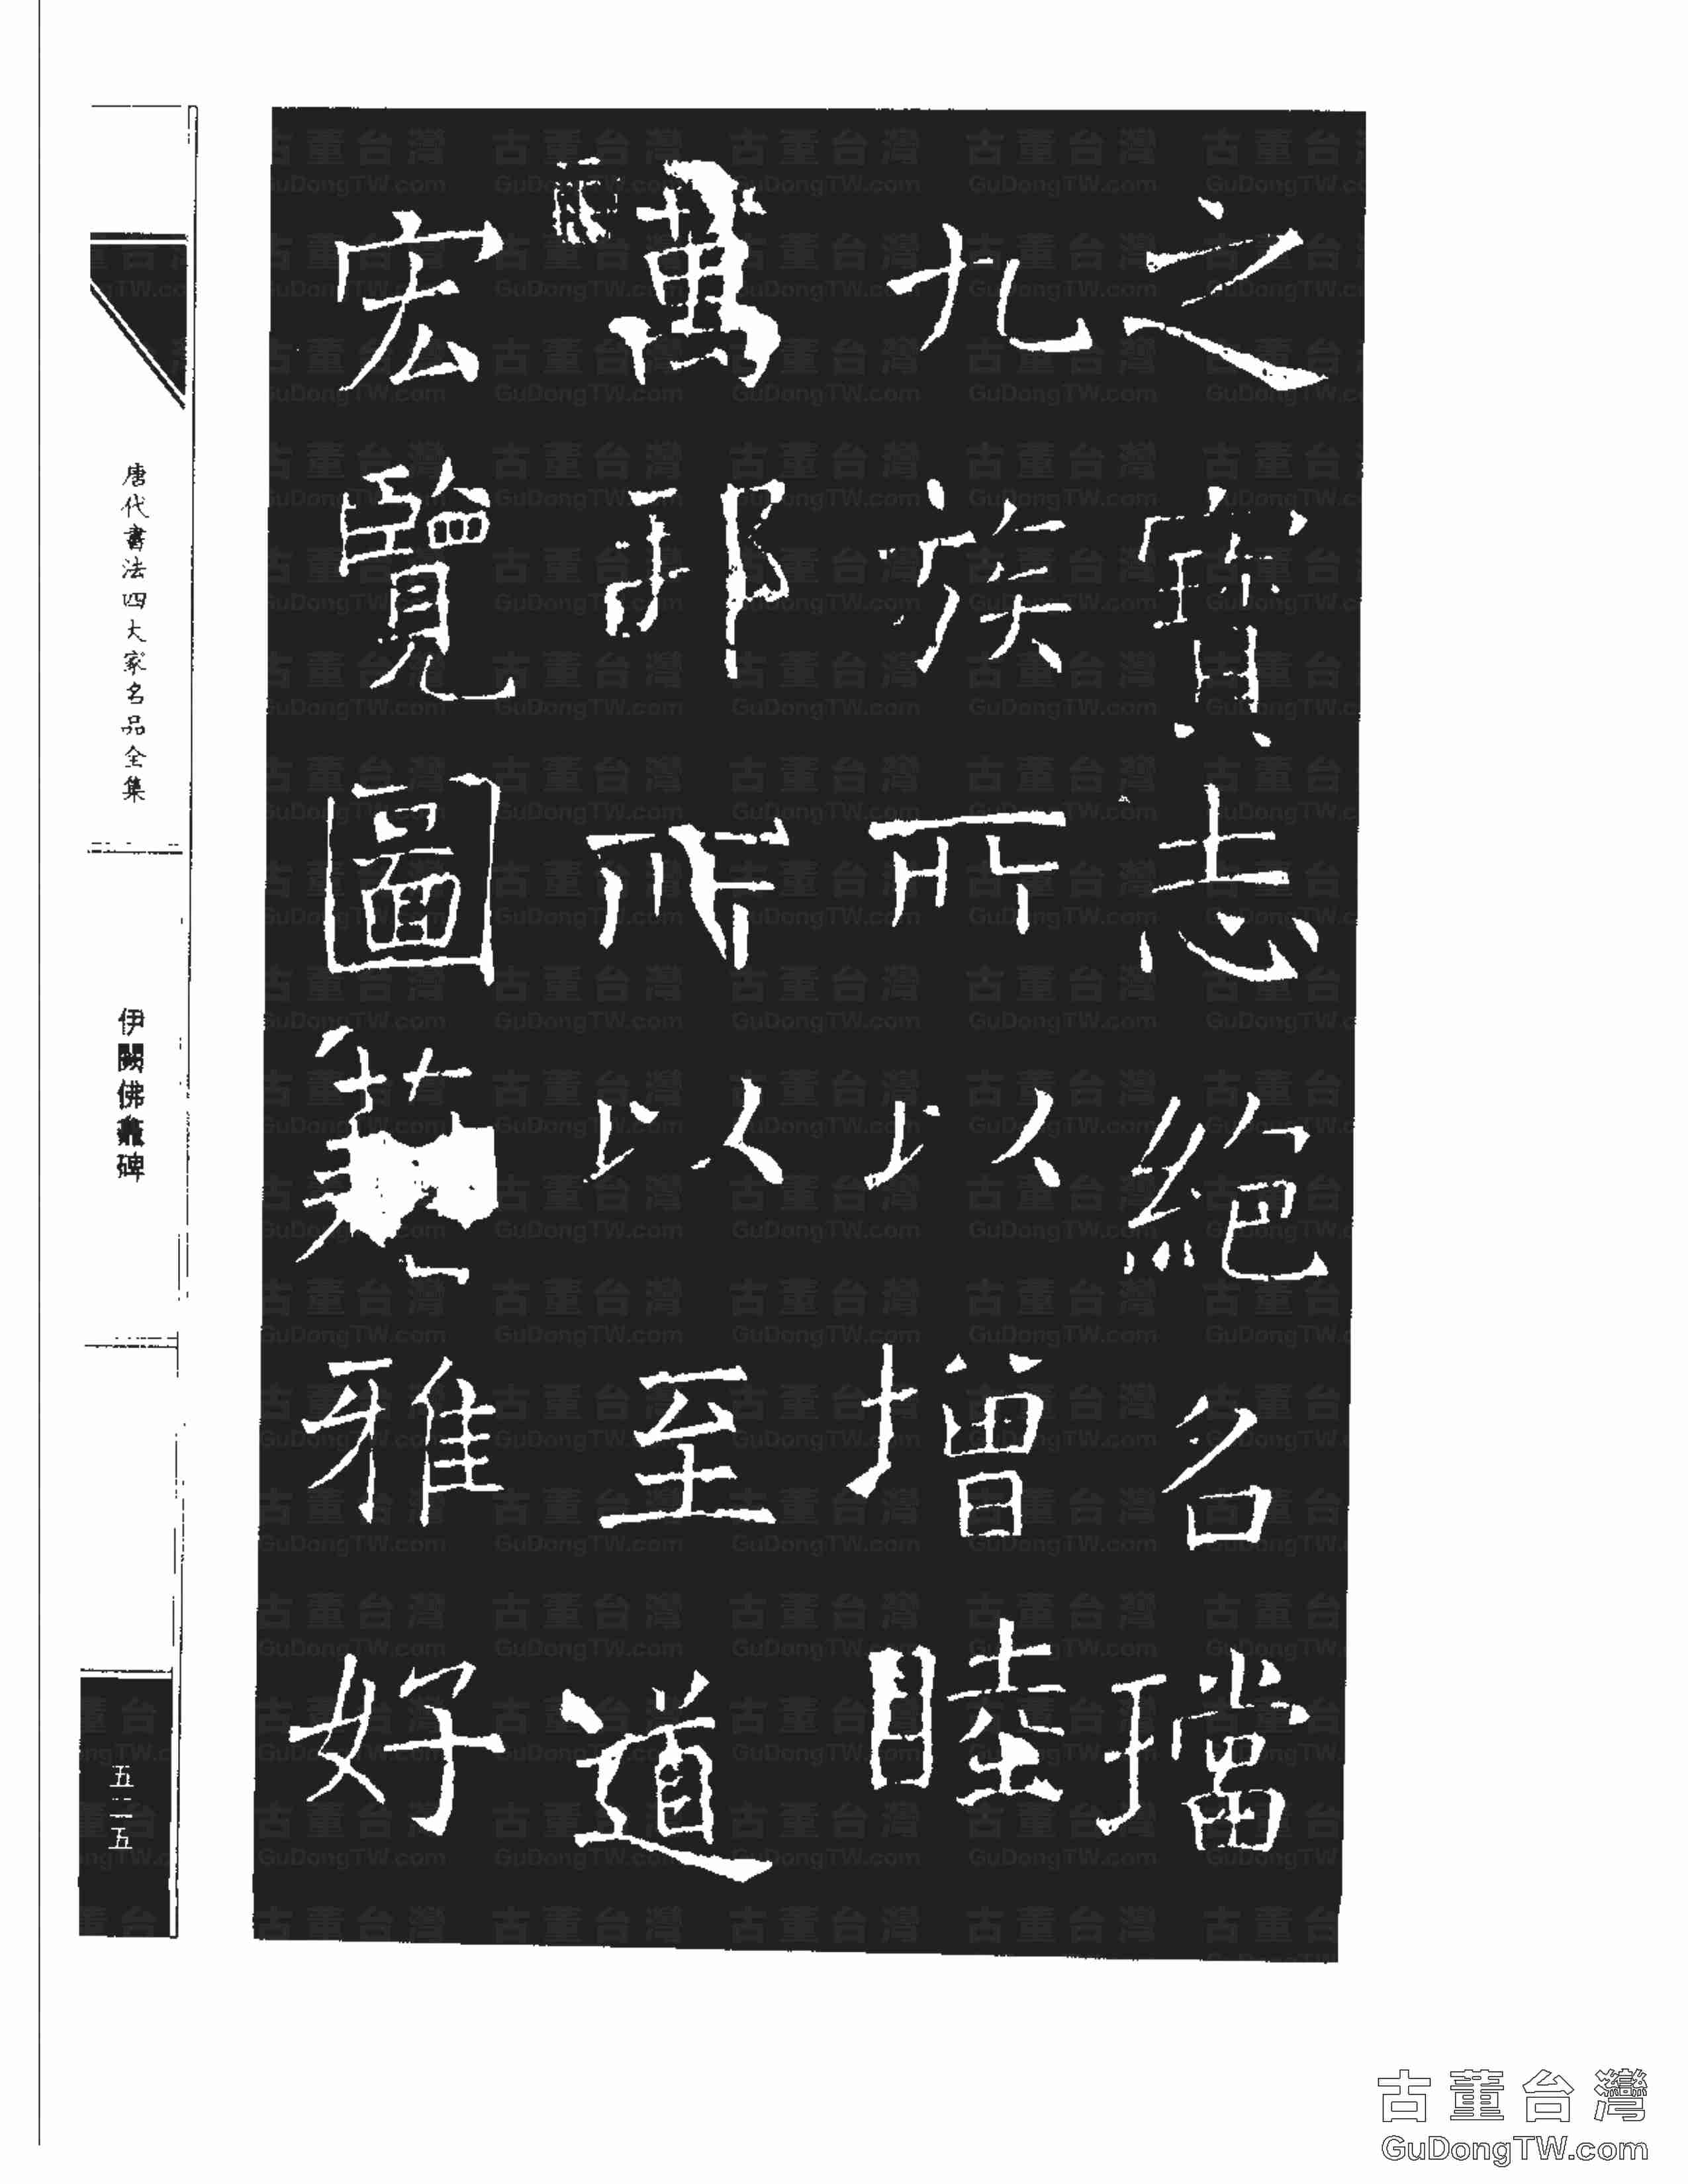 之寶志絕名璫
九族所以增睦
萬邦所以至道
宏覽圖藝雅好
唐代書法四大家名品全集
伊闕佛龕碑
五二五
古董台灣
GuDongTW.com